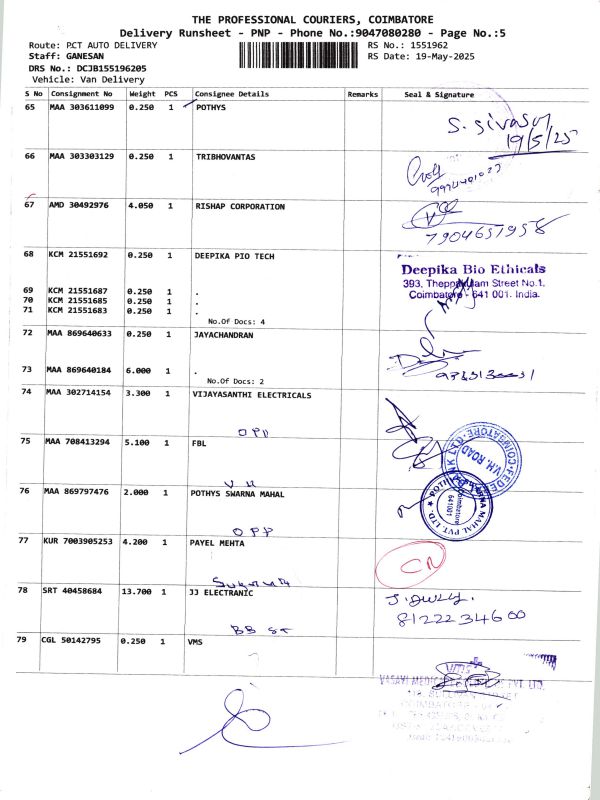 THE PROFESSIONAL COURIERS, COIMBATORE
Delivery Runsheet - PNP - Phone No.:9047080280 - Page No.:5
Route: PCT AUTO DELIVERY RS No.: 1551962
Staff: GANESAN RS Date: 19-May-2025
DRS No.: DCJB155196205
Vehicle: Van Delivery
S No Consignment No Weight PCS Consignee Details Remarks Seal & Signature
65 MAA 303611099 0.250 1 POTHYS
S. Sivasu
19/5/25
66 MAA 303303129 0.250 1 TRIBHOVANTAS
67 AMD 30492976 4.050 1 RISHAP CORPORATION
7904651958
68 KCM 21551692 0.250 1 DEEPIKA PIO TECH
Deepika Bio Ethicals
393, Theppakulam Street No.1,
Coimbatore - 641 001. India.
69 KCM 21551687 0.250 1 .
70 KCM 21551685 0.250 1 .
71 KCM 21551683 0.250 1 .
No.Of Docs: 4
72 MAA 869640633 0.250 1 JAYACHANDRAN
73 MAA 869640184 6.000 1 .
No.Of Docs: 2
74 MAA 302714154 3.300 1 VIJAYASANTHI ELECTRICALS
OPP
75 MAA 708413294 5.100 1 FBL
VH
COIMBATORE VH. ROAD
76 MAA 869797476 2.000 1 POTHYS SWARNA MAHAL
POTHYS SWARNA MAHAL PVT LTD.
Coimbatore
641001
OPP
77 KUR 7003905253 4.200 1 PAYEL MEHTA
CN
78 SRT 40458684 13.700 1 JJ ELECTRANIC
8122234600
BB ST
79 CGL 50142795 0.250 1 VMS
VMS